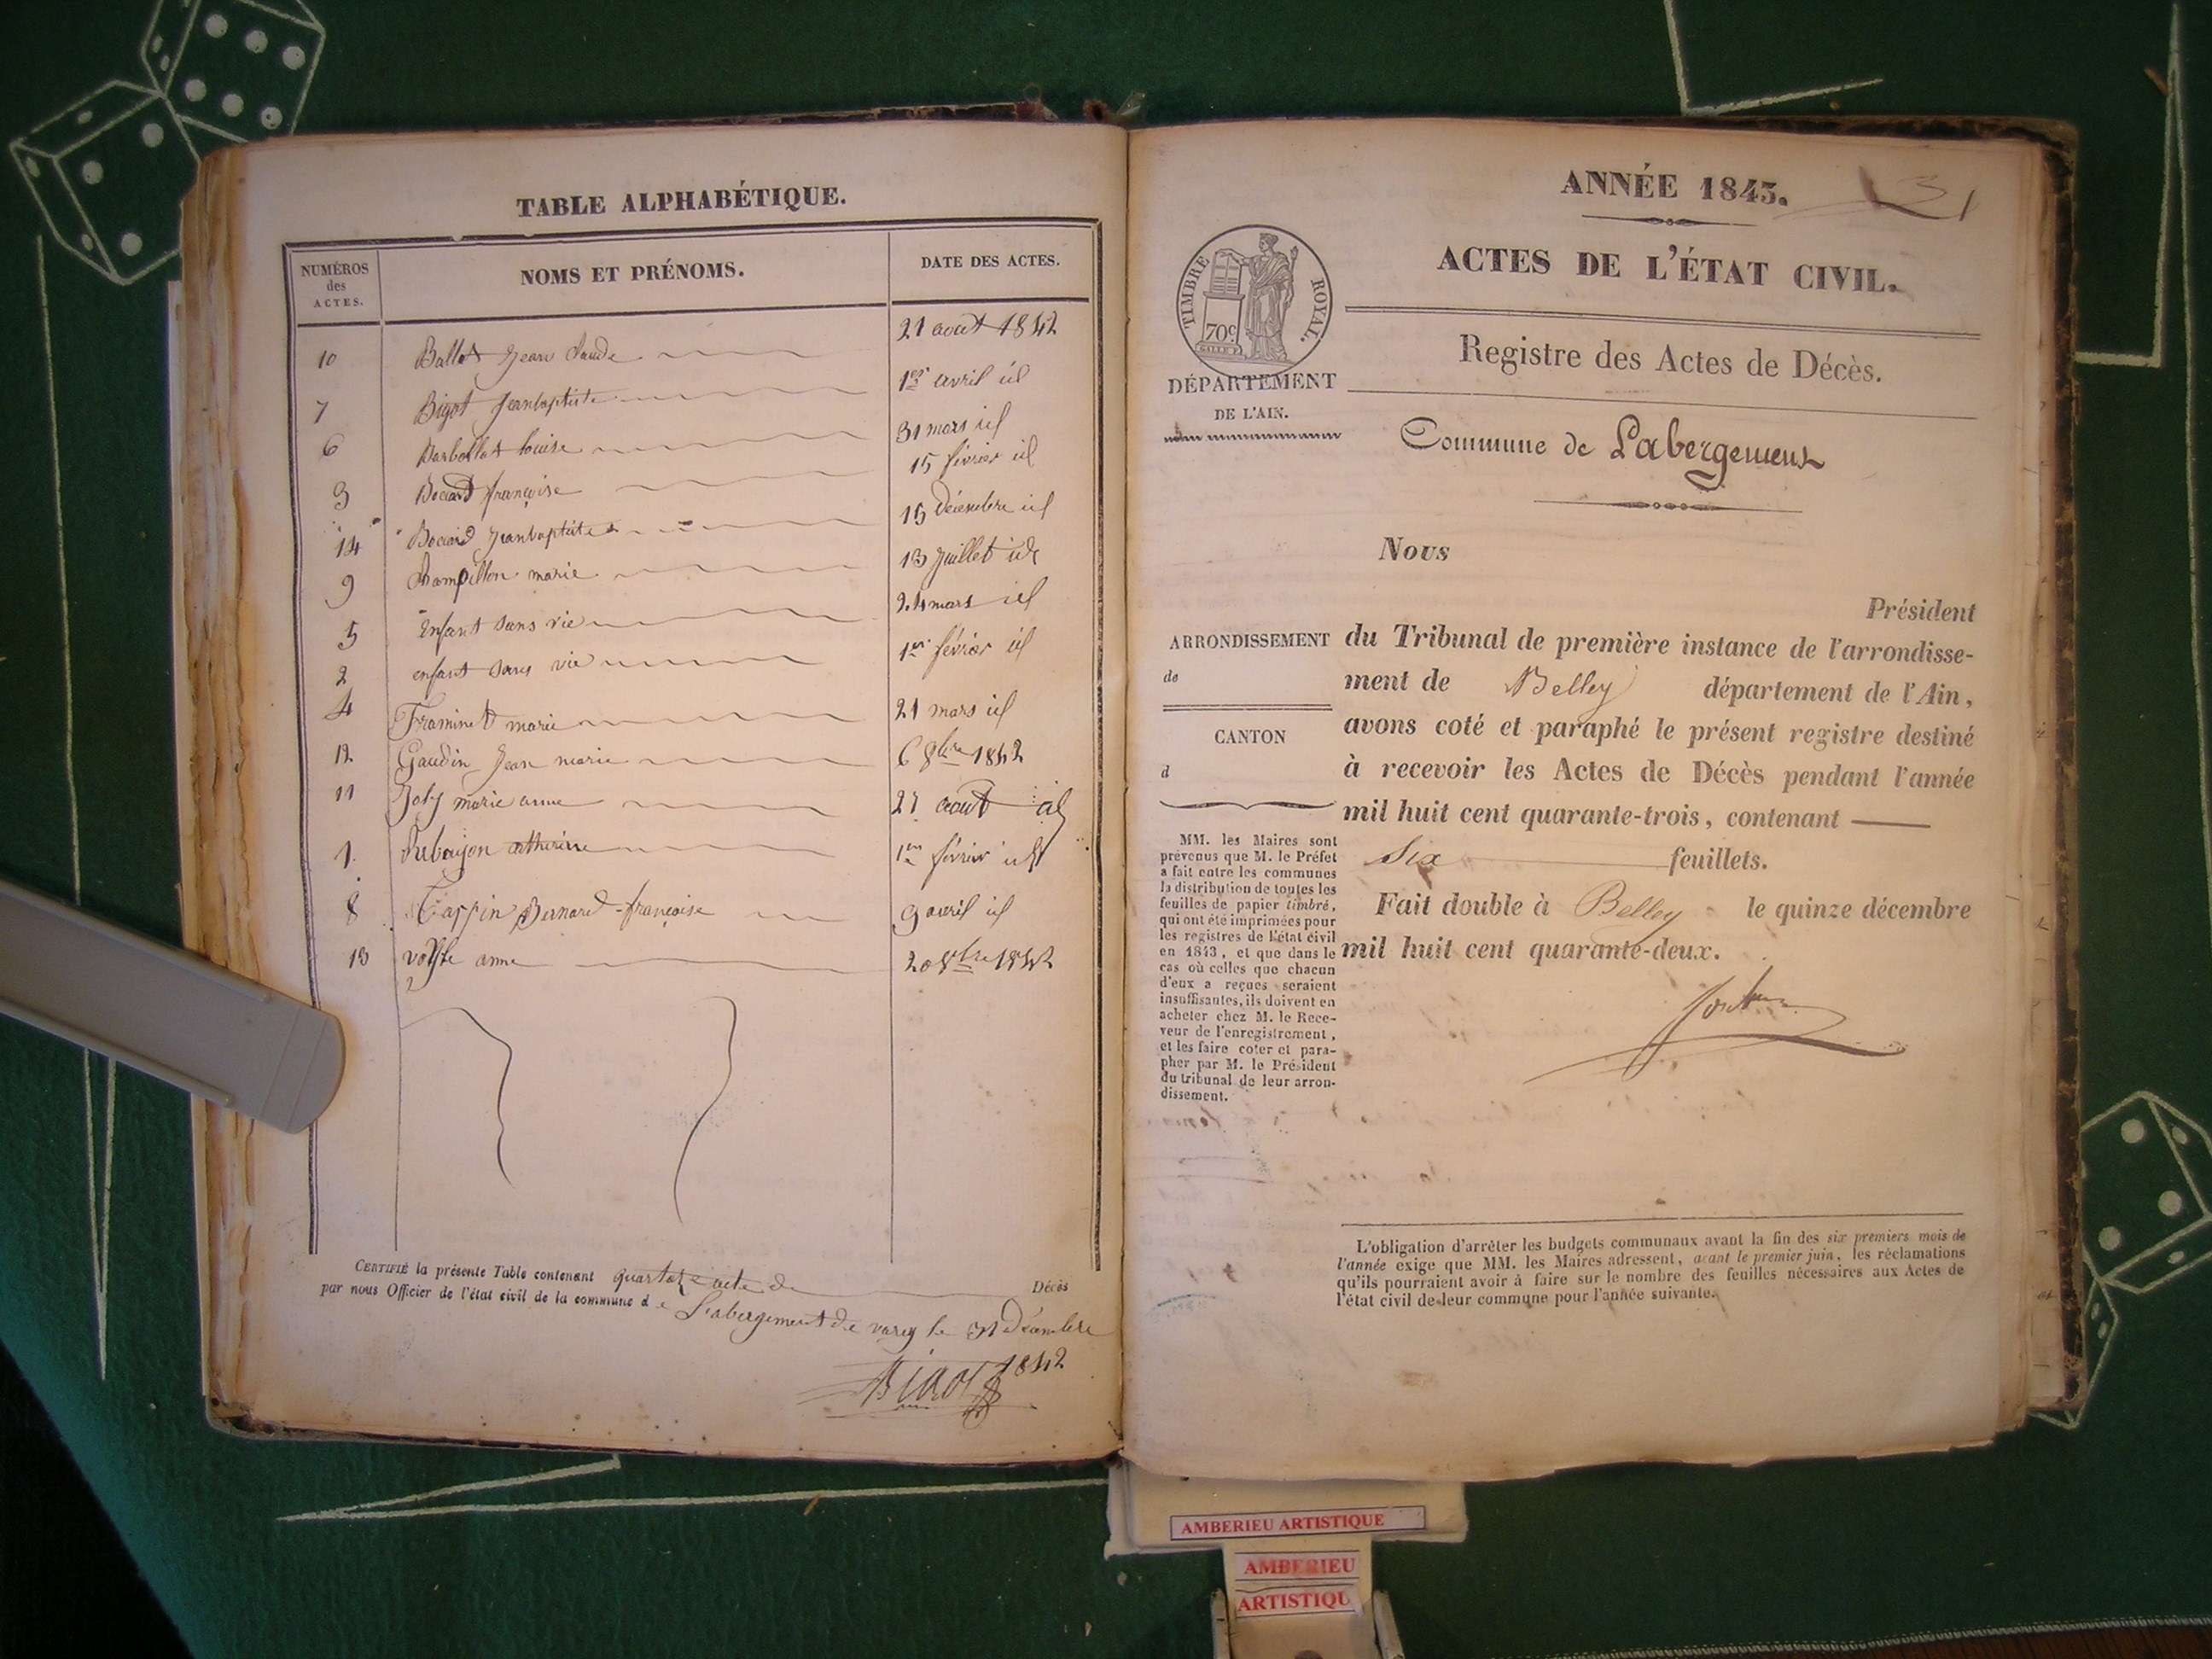 TABLE ALPHABÉTIQUE.
NUMÉROS des ACTES.
NOMS ET PRÉNOMS.
DATE DES ACTES.
10 Ballot Jean Claude 21 aout 1842
7 Bigot Jeanbaptiste 1er avril id
6 Barbollat louise 31 mars id
3 Bocard françoise 15 février id
14 Bocard Jeanbaptiste 15 Décembre id
9 Champillon marie 13 Juillet id
5 Enfant sans vie 24 mars id
2 enfant sans vie 1er février id
4 Framinet marie 21 mars id
12 Gaudin Jean marie 6 8bre 1842
11 Joly marie anne 27 aout id
1 1er février id
8 Bernard françoise 9 avril id
13 anne 20 8bre 1842
CERTIFIÉ la présente Table contenant quartorze acte de Décès
par nous Officier de l'état civil de la commune de Labergement de varey le 31 Décembre
1842
Bigot
ANNÉE 1843.
31
ACTES DE L'ÉTAT CIVIL.
TIMBRE ROYAL.
70c
Registre des Actes de Décès.
DÉPARTEMENT
DE L'AIN.
Commune de Labergement
Nous
Président
ARRONDISSEMENT
de
CANTON
d
du Tribunal de première instance de l'arrondisse-
ment de Belley département de l'Ain,
avons coté et paraphé le présent registre destiné
à recevoir les Actes de Décès pendant l'année
mil huit cent quarante-trois, contenant
six feuillets.
Fait double à Belley le quinze décembre
mil huit cent quarante-deux.
MM. les Maires sont
prévenus que M. le Préfet
a fait entre les communes
la distribution de toutes les
feuilles de papier timbré,
qui ont été imprimées pour
les registres de l'état civil
en 1843, et que dans le
cas où celles que chacun
d'eux a reçues seraient
insuffisantes, ils doivent en
acheter chez M. le Rece-
veur de l'enregistrement,
et les faire coter et para-
pher par M. le Président
du tribunal de leur arron-
dissement.
L'obligation d'arrêter les budgets communaux avant la fin des six premiers mois de
l'année exige que MM. les Maires adressent, avant le premier juin, les réclamations
qu'ils pourraient avoir à faire sur le nombre des feuilles nécessaires aux Actes de
l'état civil de leur commune pour l'année suivante.
AMBERIEU ARTISTIQUE
AMBERIEU
ARTISTIQU